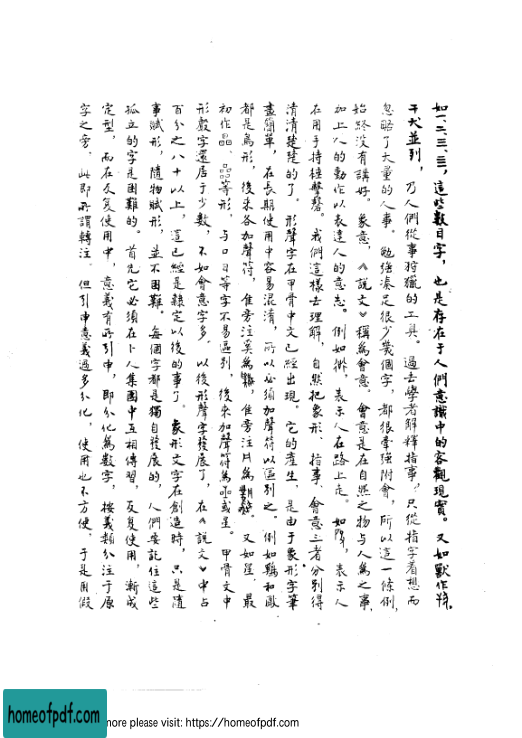 如一、二、三、亖，這些數目字，也是存在于人們意識中的客觀現實。又如獸作
干犬並列，乃人們從事狩獵的工具。過去學者解釋指事，只從指字着想而
忽略了大量的人事。勉強湊足很少幾個字，都很牽強附會，所以這一條例
始終沒有講好。象意，《說文》稱爲會意。會意是在自然之物与人爲之事
加上人的動作以表達人的意志。例如，表示人在路上走。如，表示人
在用手持槌擊磬。我們這樣去理解，自然把象形、指事、會意三者分別得
清清楚楚的了。形聲字在甲骨中文已經出現。它的產生，是由于象形字筆
畫簡單，在長期使用中容易混淆，所以必須加聲符以區別之。例如鷄和鳳
都是鳥形，後來各加聲符，隹旁注奚爲鷄，隹旁注凡爲。又如星，最
初作晶、等形，与口日等字不易區別，後來加聲符爲或星。甲骨文中
形聲字還居于少數，不如會意字多。以後形聲字發展了，在《說文》中占
百分之八十以上，這已經是賴定以後的事了。象形文字在創造時，只是隨
事賦形，隨物賦形，並不困難。每個字都是獨自發展的，人們要記住這些
孤立的字是困難的。首先它必須在卜人集團中互相傳習，反复使用，漸成
定型，而在反复使用中，意義有所引申，即分化爲數字，按義類分注于原
字之旁，此即所謂轉注。但引申意義過多分化，使用也不方便，于是用假
homeofpdf.com
more please visit: https://homeofpdf.com